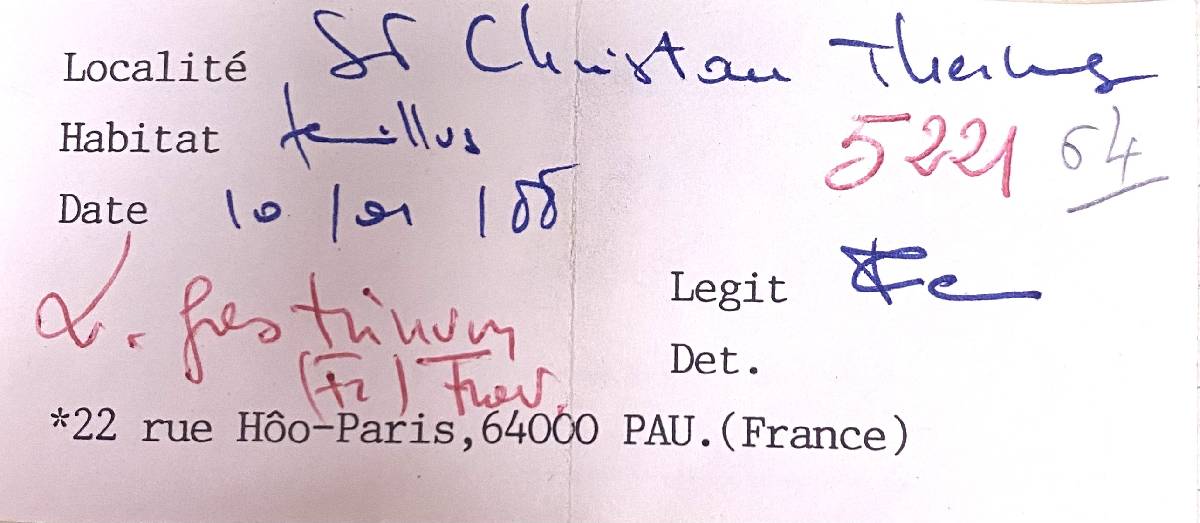 Localité St Christau Thermes
Habitat feuillus 5221 64
Date 10 / 01 / 88
L.
Legit
(Fr) 
Det.
*22 rue Hôo-Paris,64000 PAU.(France)